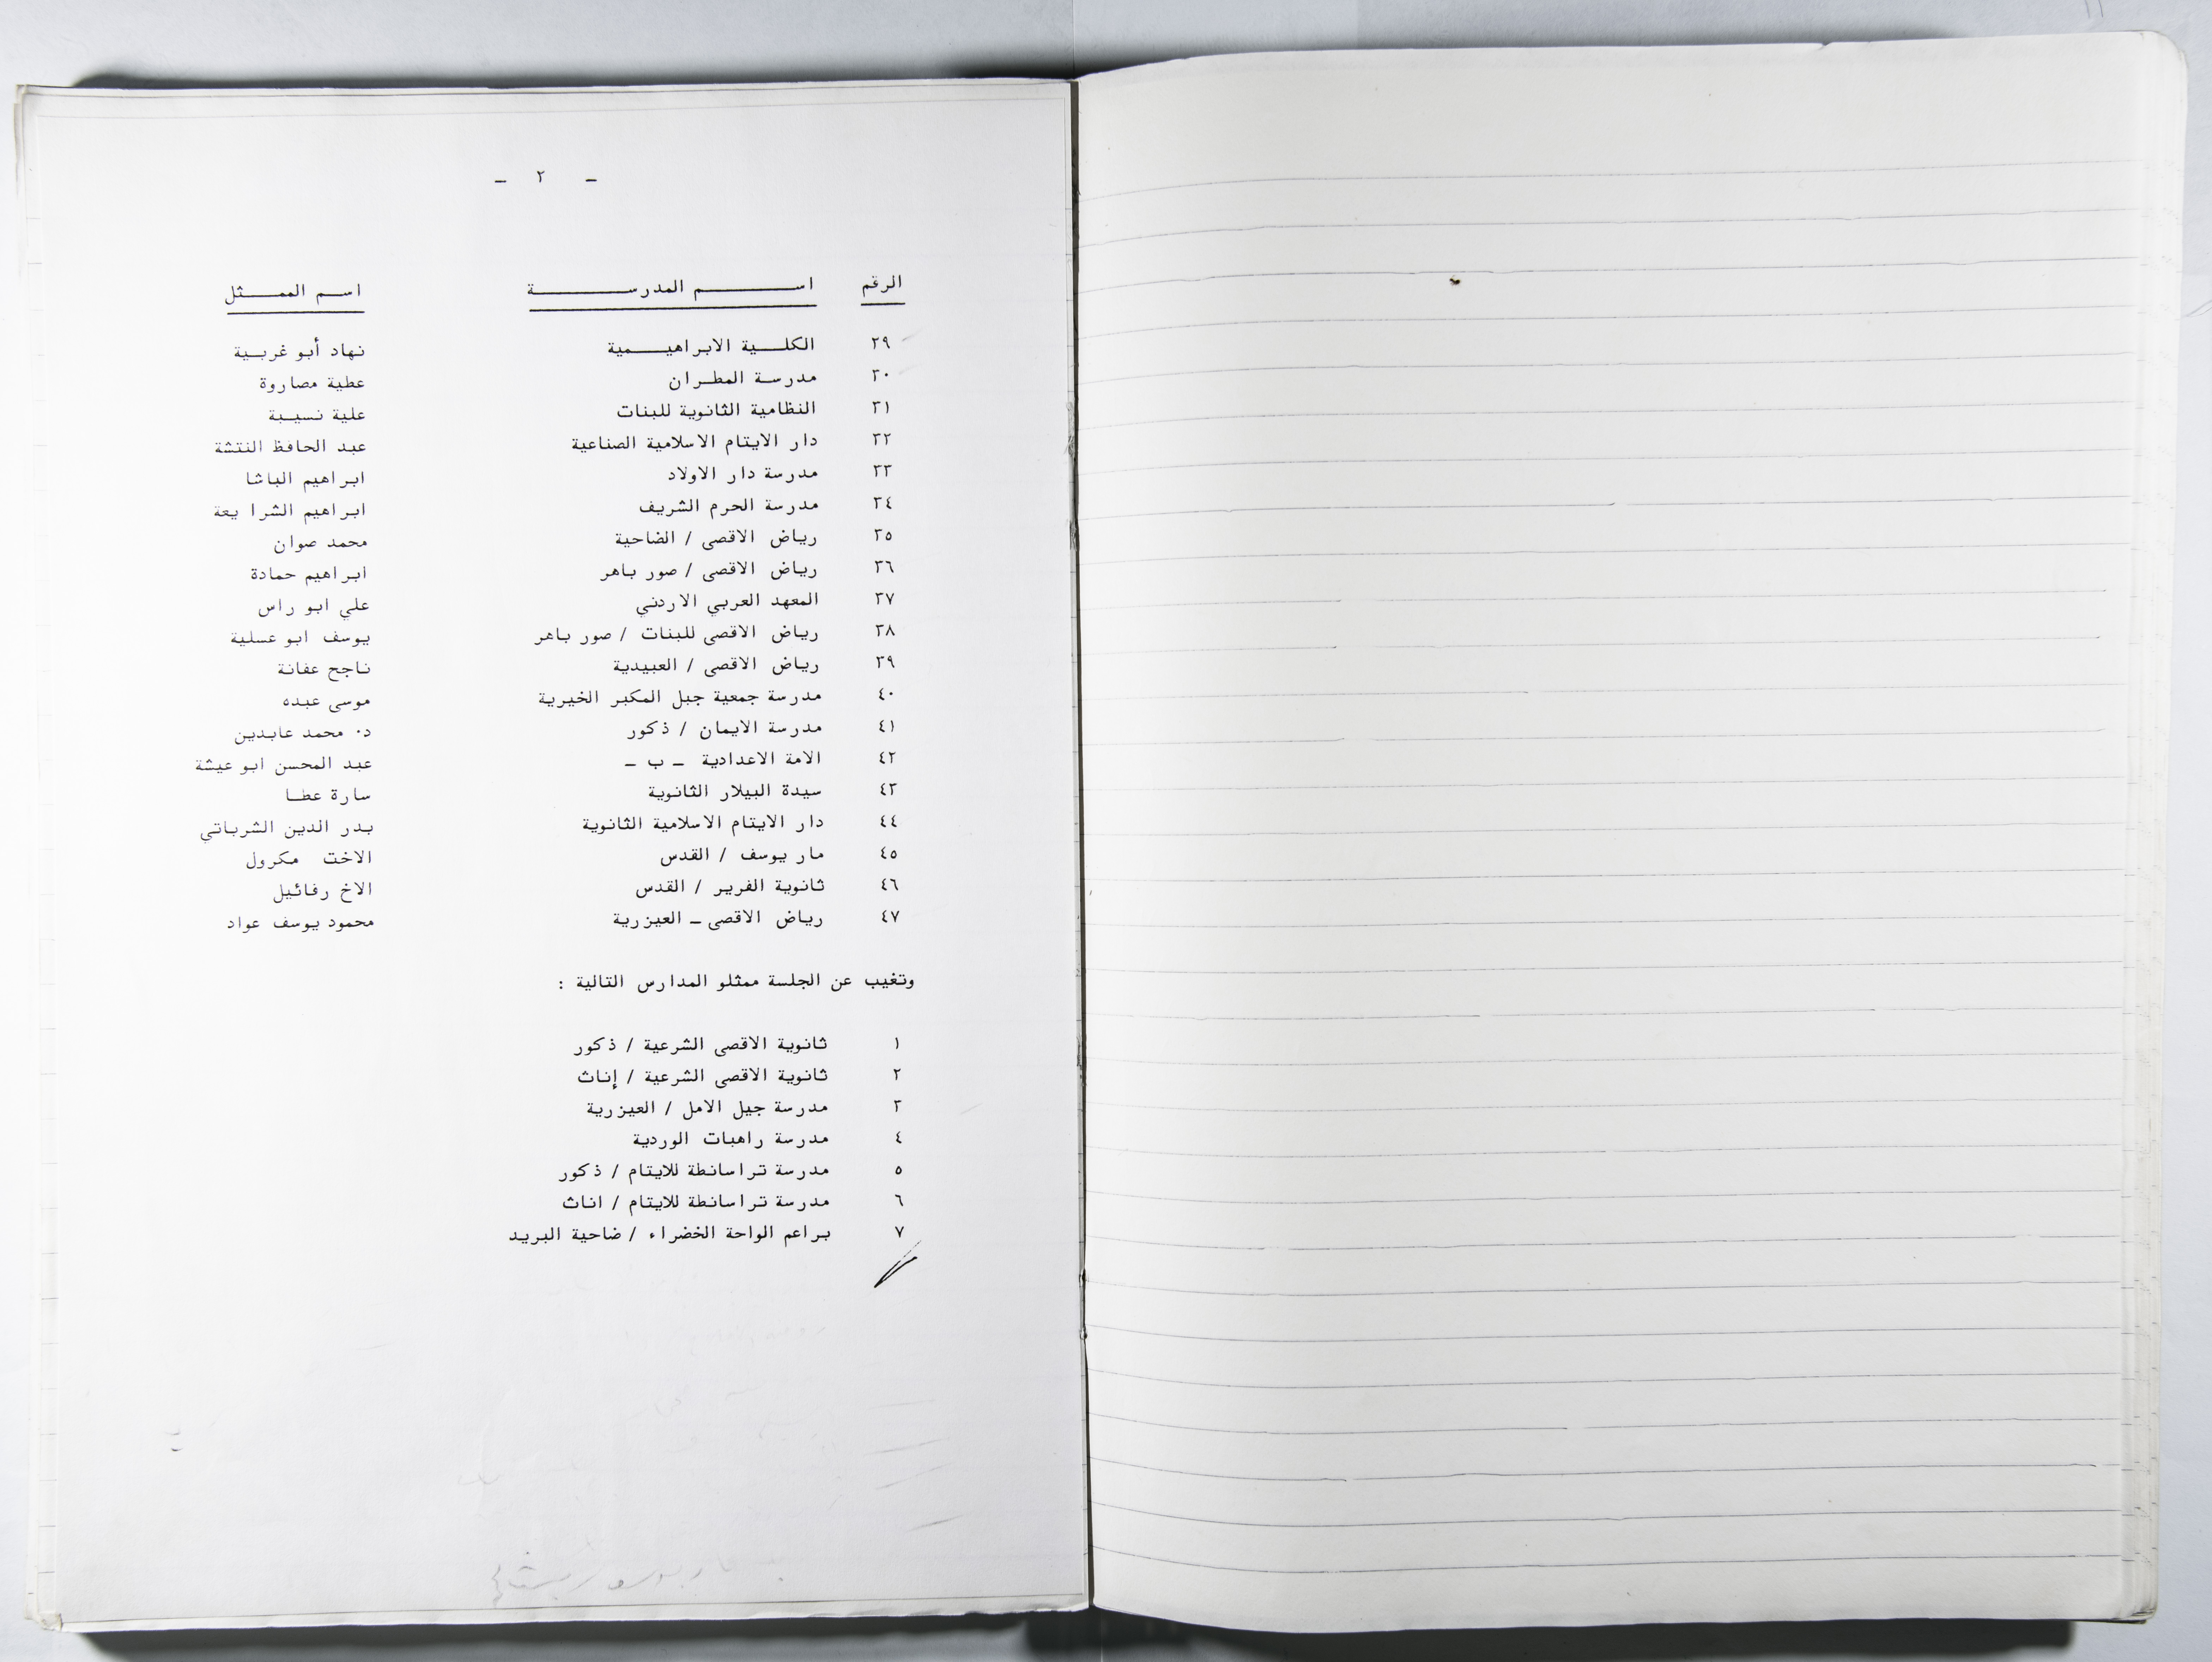 - ٢ -
الرقم اسم المدرسة اسم الممثل
٢٩ الكلية الابراهيمية نهاد أبو غربية
٣٠ مدرسة المطران عطية مصاروة
٣١ النظامية الثانوية للبنات علية نسيبة
٣٢ دار الايتام الاسلامية الصناعية عبد الحافظ النتشة
٣٣ مدرسة دار الاولاد ابراهيم الباشا
٣٤ مدرسة الحرم الشريف ابراهيم الشرايعة
٣٥ رياض الاقصى / الضاحية محمد صوان
٣٦ رياض الاقصى / صور باهر ابراهيم حمادة
٣٧ المعهد العربي الاردني علي ابو راس
٣٨ رياض الاقصى للبنات / صور باهر يوسف ابو عسلية
٣٩ رياض الاقصى / العبيدية ناجح عفانة
٤٠ مدرسة جمعية جبل المكبر الخيرية موسى عبده
٤١ مدرسة الايمان / ذكور د. محمد عابدين
٤٢ الامة الاعدادية - ب - عبد المحسن ابو عيشة
٤٣ سيدة البيلار الثانوية سارة عطا
٤٤ دار الايتام الاسلامية الثانوية بدر الدين الشرباتي
٤٥ مار يوسف / القدس الاخت مكرول
٤٦ ثانوية الفرير / القدس الاخ رفائيل
٤٧ رياض الاقصى - العيزرية محمود يوسف عواد
وتغيب عن الجلسة ممثلو المدارس التالية :
١ ثانوية الاقصى الشرعية / ذكور
٢ ثانوية الاقصى الشرعية / إناث
٣ مدرسة جيل الامل / العيزرية
٤ مدرسة راهبات الوردية
٥ مدرسة تراسانطة للايتام / ذكور
٦ مدرسة تراسانطة للايتام / اناث
٧ براعم الواحة الخضراء / ضاحية البريد